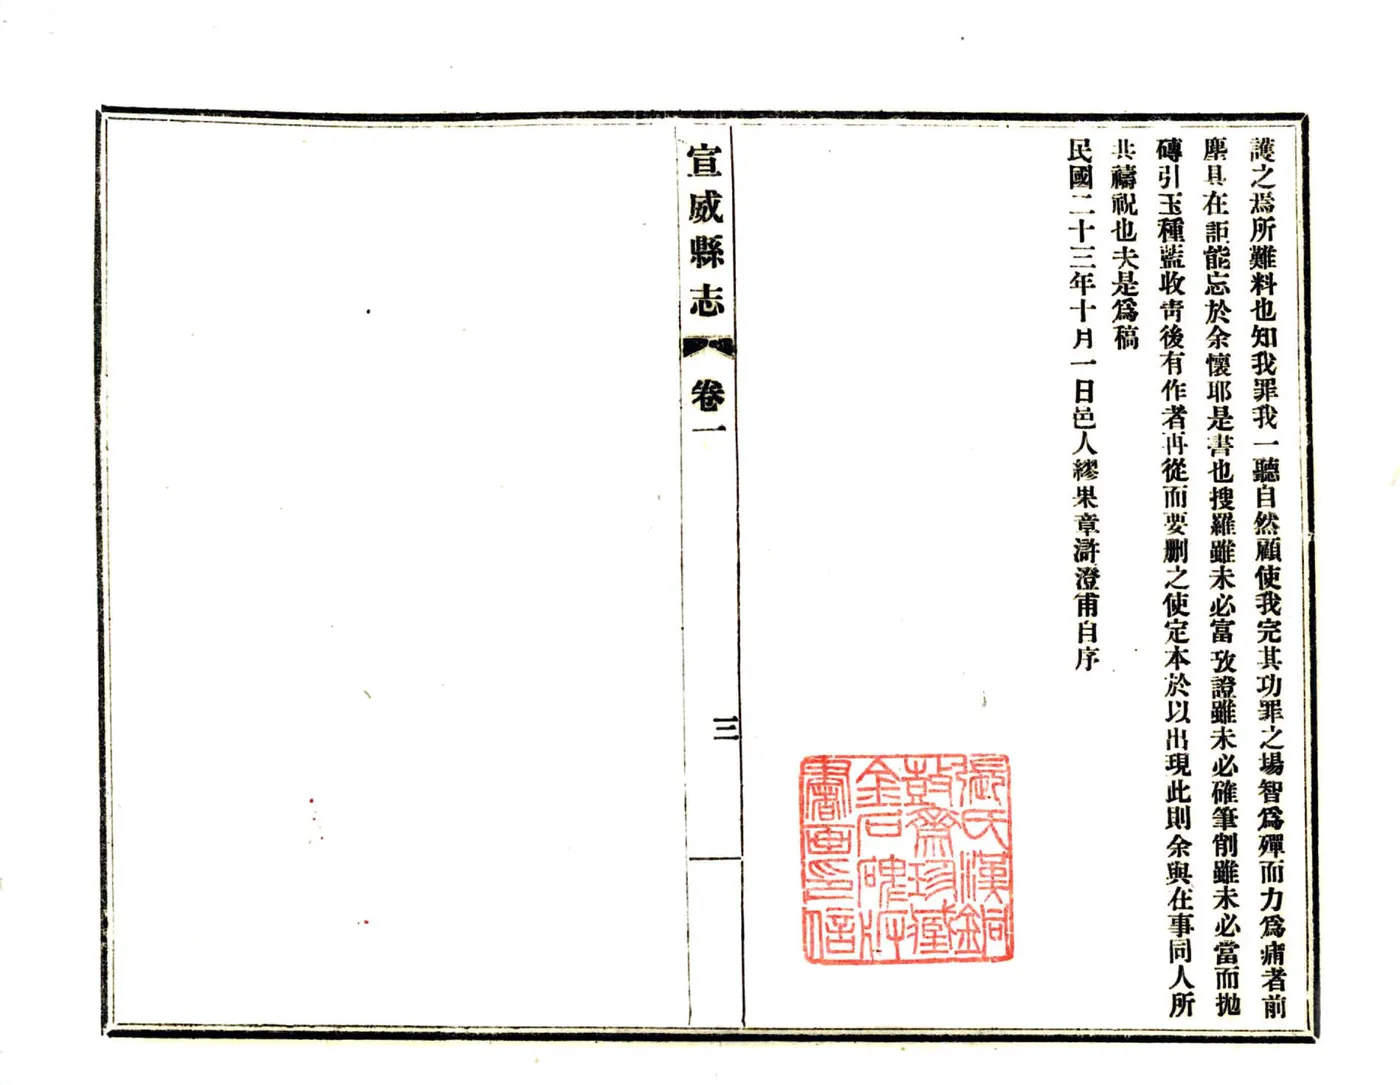 護之焉所難料也知我罪我一聽自然顧使我完其功罪之場智爲殫而力爲痡者前
塵具在詎能忘於余懷耶是書也搜羅雖未必富攷證雖未必確筆削雖未必當而拋
磚引玉種藍收靑後有作者再從而要删之使定本於以出現此則余與在事同人所
共禱祝也夫是爲稿
民國二十三年十月一日邑人繆果章滸澄甫自序
張氏漢銅
鼓齋珍藏
金石碑版
書畫印信
宣威縣志
卷一
三